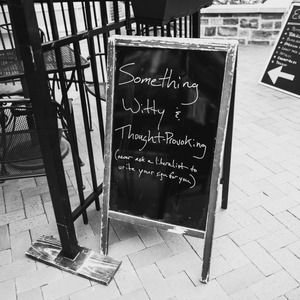 Something
Witty &
Thought-Provoking
(never ask a literalist to
write your sign for you)